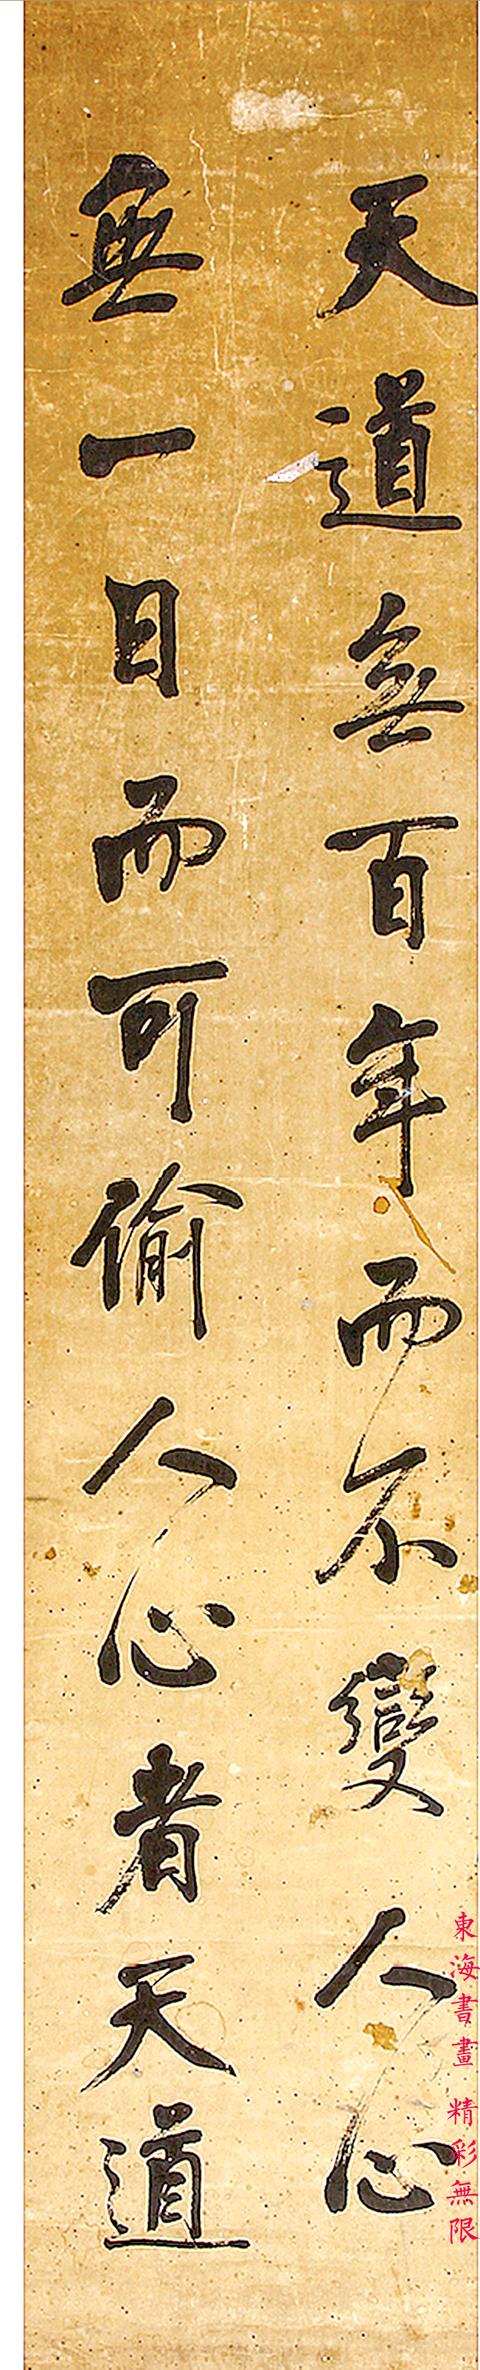 天道無百年而不變人心
無一日而可偷人心者天道
東海書畫 精彩無限